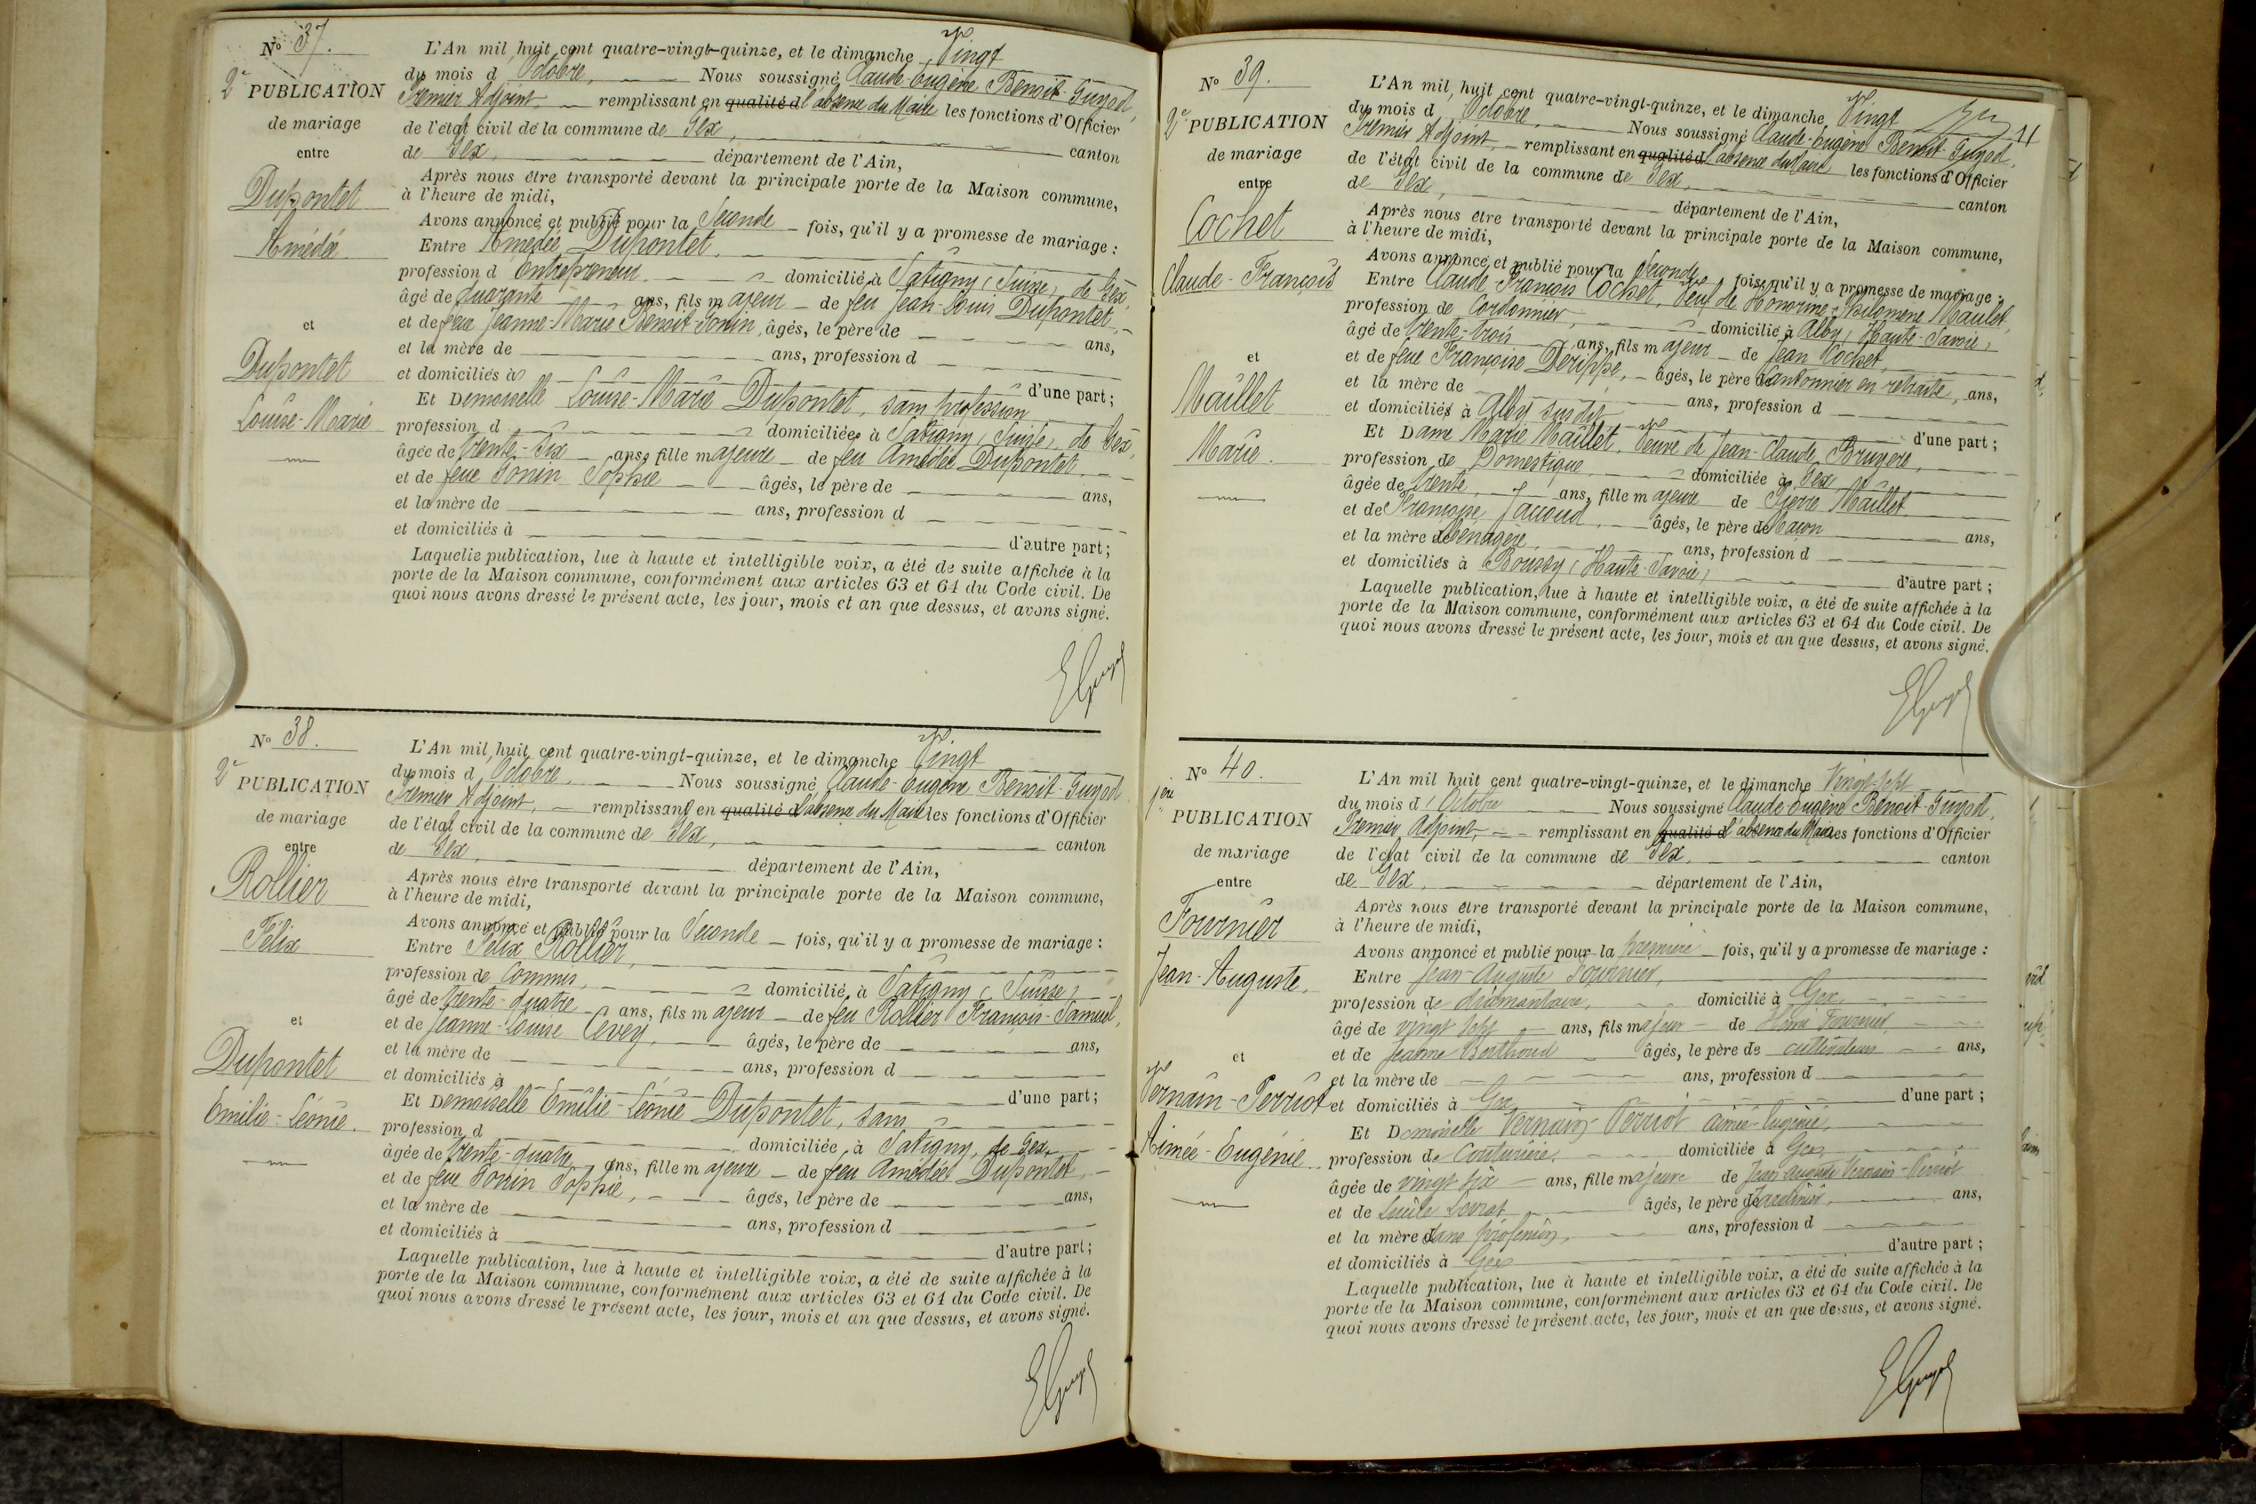 N° 37.
2e PUBLICATION
de mariage
entre
Dupontet
Amédée
et
Dupontet
Louise-Marie
L'An mil huit cent quatre-vingt-quinze, et le dimanche Vingt
du mois d Octobre, Nous soussigné Claude-Eugène Benoit-Guyod,
Premier Adjoint, remplissant en qualité d l'absence du Maire les fonctions d'Officier
de l'état civil de la commune de Gex, canton
de Gex, département de l'Ain,
Après nous être transporté devant la principale porte de la Maison commune,
à l'heure de midi,
Avons annoncé et publié pour la Seconde fois, qu'il y a promesse de mariage :
Entre Amédée Dupontet,
profession d Entrepreneur domicilié à Satigny (Suisse) de Gex,
âgé de quarante ans, fils majeur de feu Jean-Louis Dupontet,
et de feue Jeanne-Marie Benoit-Jonin, âgés, le père de ans,
et la mère de ans, profession d
et domiciliés à d'une part ;
Et Demoiselle Louise-Marie Dupontet, sans profession
profession d domiciliée à Satigny (Suisse) de Gex,
âgée de trente-six ans, fille majeure de feu Amédée Dupontet,
et de feue Jonin Sophie âgés, le père de ans,
et la mère de ans, profession d
et domiciliés à d'autre part ;
Laquelle publication, lue à haute et intelligible voix, a été de suite affichée à la
porte de la Maison commune, conformément aux articles 63 et 64 du Code civil. De
quoi nous avons dressé le présent acte, les jour, mois et an que dessus, et avons signé.
N° 38.
2e PUBLICATION
de mariage
entre
Rollier
Félix
et
Dupontet
Emilie-Léonie.
L'An mil huit cent quatre-vingt-quinze, et le dimanche Vingt
du mois d Octobre, Nous soussigné Claude-Eugène Benoit-Guyod
Premier Adjoint, remplissant en qualité d l'absence du Maire les fonctions d'Officier
de l'état civil de la commune de Gex, canton
de Gex, département de l'Ain,
Après nous être transporté devant la principale porte de la Maison commune,
à l'heure de midi,
Avons annoncé et publié pour la Seconde fois, qu'il y a promesse de mariage :
Entre Félix Rollier,
profession de Commis, domicilié à Satigny (Suisse)
âgé de trente-quatre ans, fils majeur de feu Rollier François-Samuel,
et de Jeanne-Louise Cevey, âgés, le père de ans,
et la mère de ans, profession d
et domiciliés à d'une part ;
Et Demoiselle Emilie-Léonie Dupontet, sans
profession d domiciliée à Satigny, de Gex,
âgée de trente-quatre ans, fille majeure de feu Amédée Dupontet,
et de feue Jonin Sophie, âgés, le père de ans,
et la mère de ans, profession d
et domiciliés à d'autre part ;
Laquelle publication, lue à haute et intelligible voix, a été de suite affichée à la
porte de la Maison commune, conformément aux articles 63 et 64 du Code civil. De
quoi nous avons dressé le présent acte, les jour, mois et an que dessus, et avons signé.
N° 39.
2e PUBLICATION
de mariage
entre
Cochet
Claude-François
et
Maillet
Marie.
L'An mil huit cent quatre-vingt-quinze, et le dimanche Vingt
du mois d Octobre, Nous soussigné Claude-Eugène Benoit-Guyod,
Premier Adjoint, remplissant en qualité d l'absence du Maire les fonctions d'Officier
de l'état civil de la commune de Gex, canton
de Gex, département de l'Ain,
Après nous être transporté devant la principale porte de la Maison commune,
à l'heure de midi,
Avons annoncé et publié pour la Seconde fois, qu'il y a promesse de mariage :
Entre Claude-François Cochet, Veuf de Honorine-Philomène Maulet,
profession de Cordonnier, domicilié à Alby (Haute-Savoie)
âgé de trente-trois ans, fils majeur de Jean Cochet,
et de feue Françoise Derippe, âgés, le père de Cantonnier en retraite, ans,
et la mère de ans, profession d
et domiciliés à Alby susdit d'une part ;
Et Dame Marie Maillet, Veuve de Jean-Claude Bruyère,
profession de Domestique domiciliée à Gex
âgée de trente ans, fille majeure de Pierre Maillet
et de Françoise Jaccoud, âgés, le père de Maçon ans,
et la mère de Ménagère, ans, profession d
et domiciliés à Boussy (Haute-Savoie) d'autre part ;
Laquelle publication, lue à haute et intelligible voix, a été de suite affichée à la
porte de la Maison commune, conformément aux articles 63 et 64 du Code civil. De
quoi nous avons dressé le présent acte, les jour, mois et an que dessus, et avons signé.
N° 40.
1ère
PUBLICATION
de mariage
entre
Fournier
Jean-Auguste,
et
Vernain-Perriot
Aimée-Eugénie.
L'An mil huit cent quatre-vingt-quinze, et le dimanche Vingt-sept
du mois d'Octobre Nous soussigné Claude-Eugène Benoit-Guyod,
Premier Adjoint, remplissant en qualité d l'absence du Maire les fonctions d'Officier
de l'état civil de la commune de Gex, canton
de Gex, département de l'Ain,
Après nous être transporté devant la principale porte de la Maison commune,
à l'heure de midi,
Avons annoncé et publié pour la première fois, qu'il y a promesse de mariage :
Entre Jean-Auguste Fournier,
profession de diamantaire, domicilié à Gex,
âgé de vingt sept ans, fils majeur de Fournier,
et de Jeanne Berthoud âgés, le père de cultivateur ans,
et la mère de ans, profession d
et domiciliés à Gex d'une part ;
Et Demoiselle Vernain-Perriot Aimée-Eugénie,
profession de Couturière, domiciliée à Gex,
âgée de vingt six ans, fille majeure de Jean Auguste Vernain-Perriot
et de âgés, le père de Jardinier, ans,
et la mère sans profession, ans, profession d
et domiciliés à Gex d'autre part ;
Laquelle publication, lue à haute et intelligible voix, a été de suite affichée à la
porte de la Maison commune, conformément aux articles 63 et 64 du Code civil. De
quoi nous avons dressé le présent acte, les jour, mois et an que dessus, et avons signé.